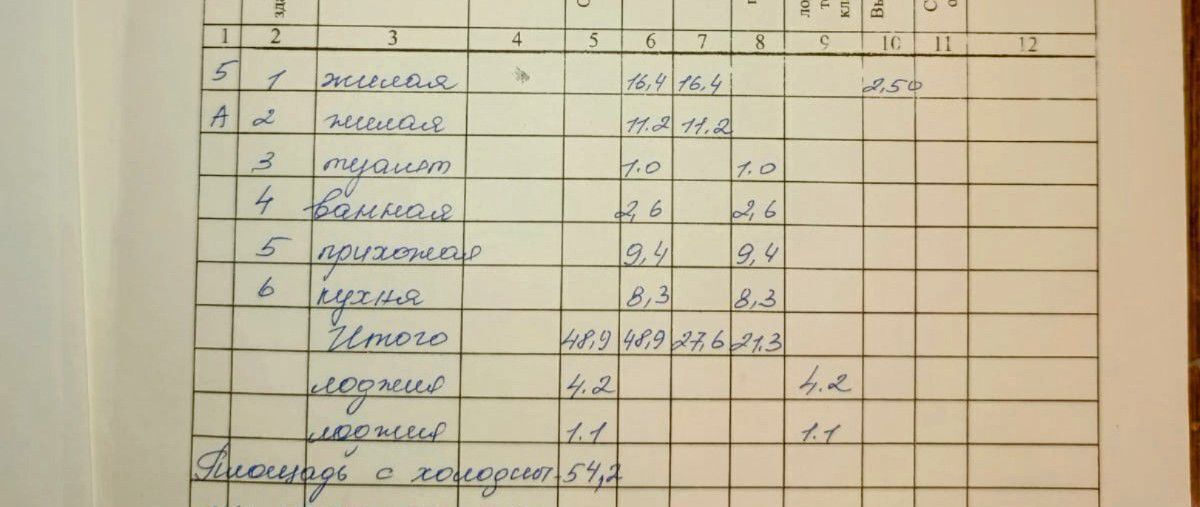 1 2 3 4 5 6 7 8 9 10 11 12
5 1 жилая 16,4 16.4 2,50
А 2 жилая 11.2 11.2
3 туалет 1.0 1.0
4 ванная 2,6 2,6
5 прихожая 9,4 9,4
6 кухня 8,3 8,3
Итого 48,9 48,9 27,6 21.3
лоджия 4.2 4.2
лоджия 1.1 1.1
Площадь с холодны- 54,2